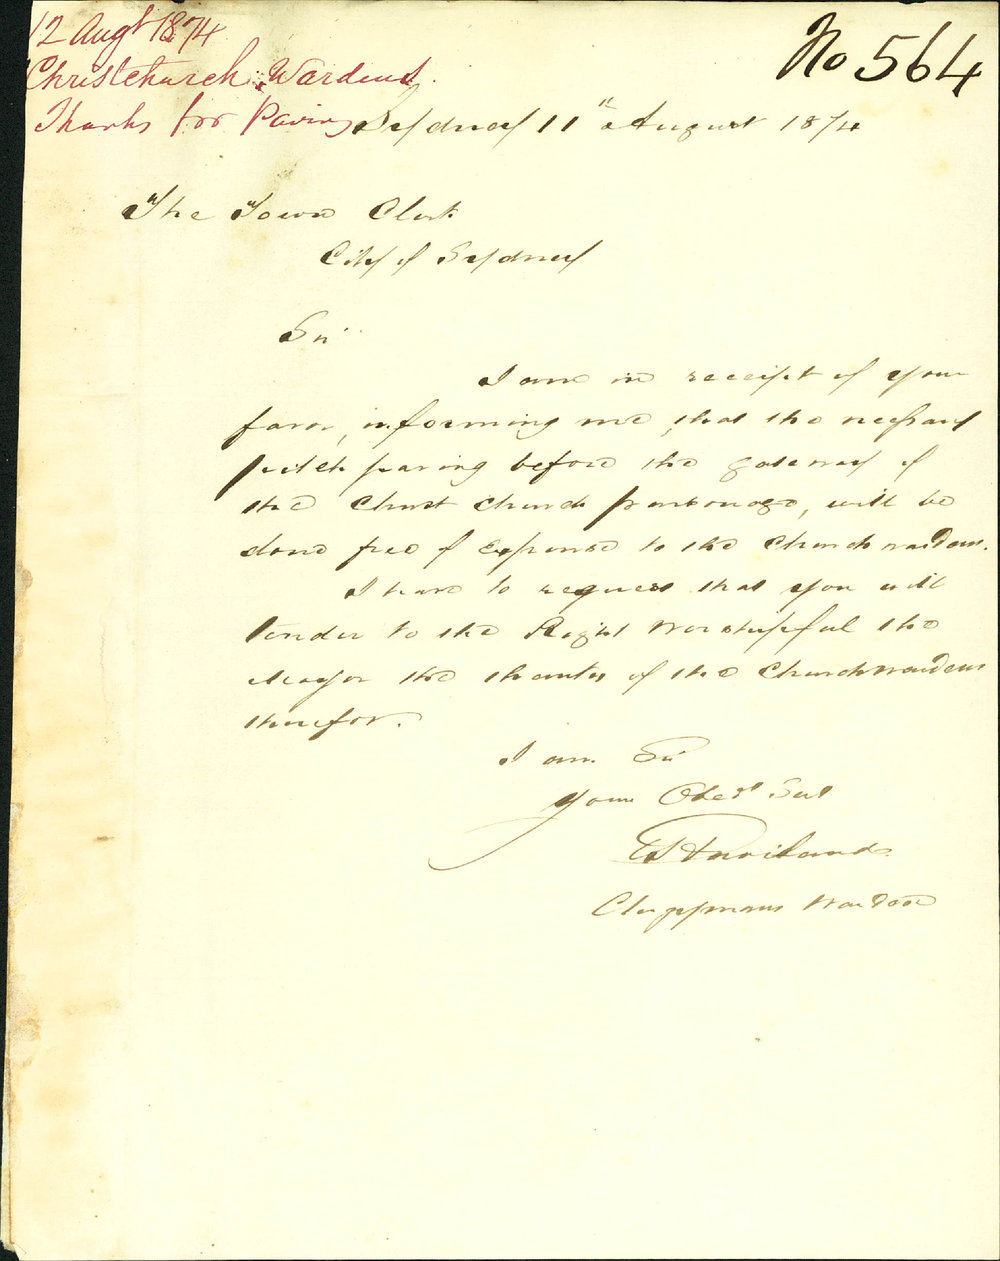 12 Augt 1874
Christchurch Wardens
Thanks for Paving
No 564
Sydney 11th August 1874
The Town Clerk
City of Sydney
Sir
I am in receipt of your
favor, informing me, that the necessary
pitch paving before the gateway of
the Christ Church parsonage, will be
done free of expense to the Churchwardens.
I have to request that you will
tender to the Right Worshipful the
Mayor the thanks of the Churchwardens
therefor.
I am Sir
Your Obedt Servt
Clergymans Warden